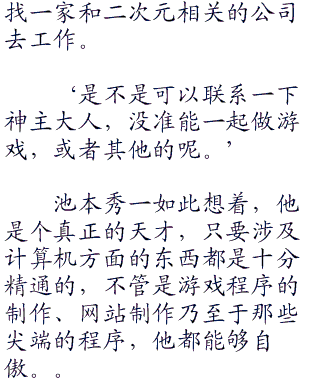 找一家和二次元相关的公司
去工作。
‘是不是可以联系一下
神主大人，没准能一起做游
戏，或者其他的呢。’
池本秀一如此想着，他
是个真正的天才，只要涉及
计算机方面的东西都是十分
精通的，不管是游戏程序的
制作、网站制作乃至于那些
尖端的程序，他都能够自
傲。。